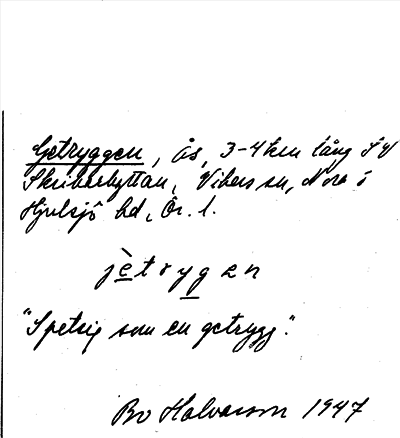 Getryggen, ås, 3-4 km lång SV
Skrikarhyttan, Vikers sn, Nora o
Hjulsjö bd, Ör. l.
jètrygen
"Spetsig som en getrygg".
Bo Halvarson 1947